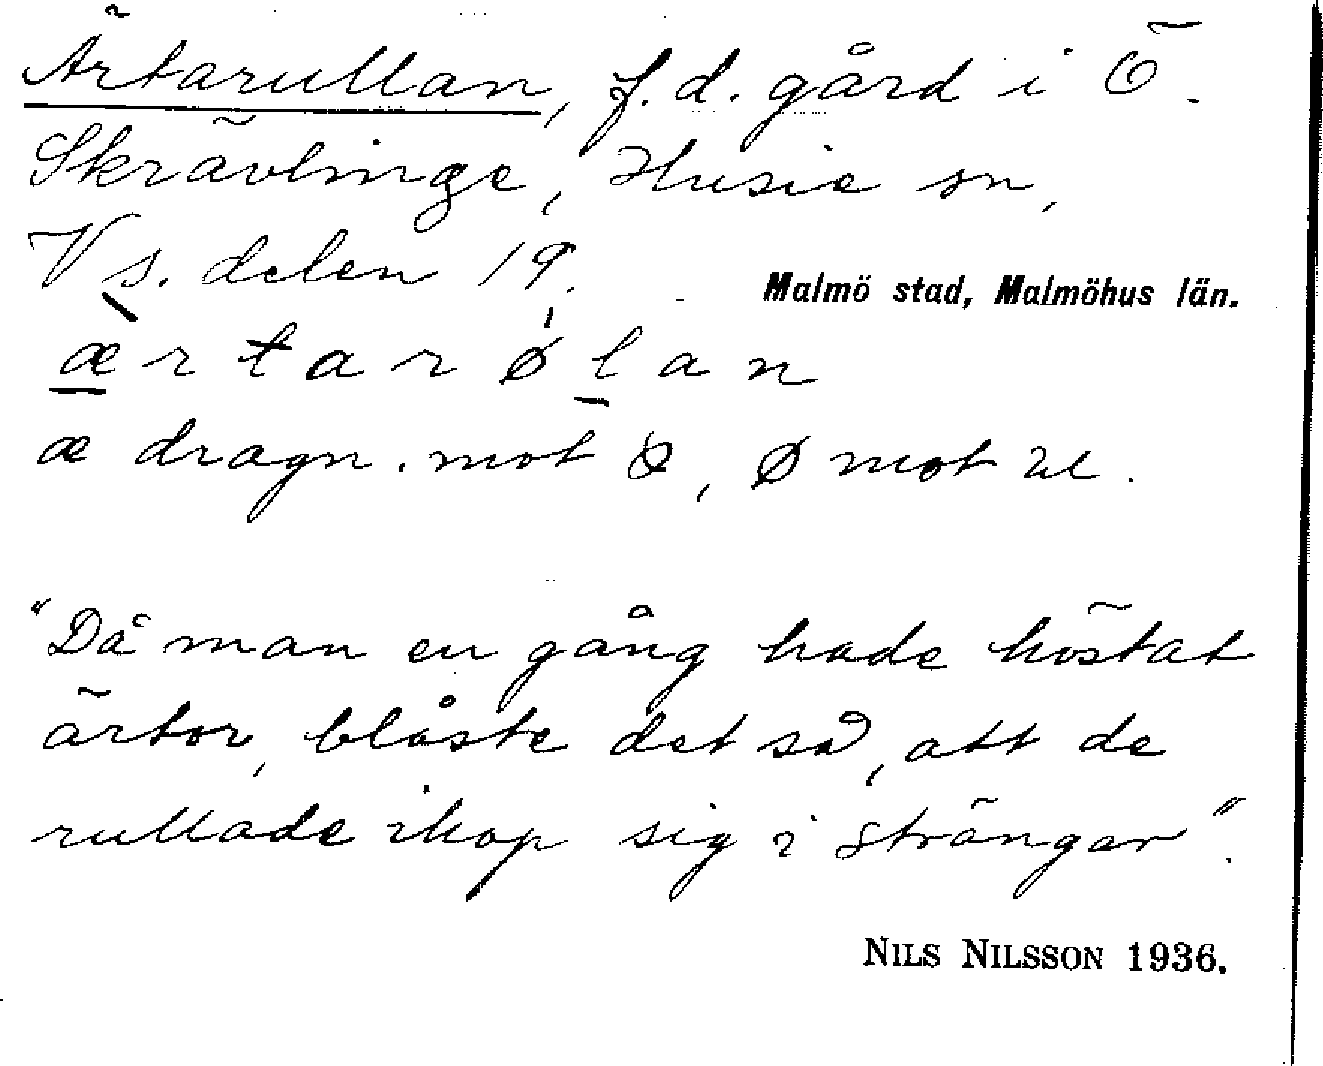 Ärtarullan, f.d. gård i Ö.
Skrävlinge, Husie sn,
V s. delen 19.
Malmö stad, Malmöhus län.
æ r t a r ø l a n
æ dragn. mot , ø mot u.
"Då man en gång hade höstat
ärtor, blåste det så, att de
rullade ihop sig i stränger".
NILS NILSSON 1936.